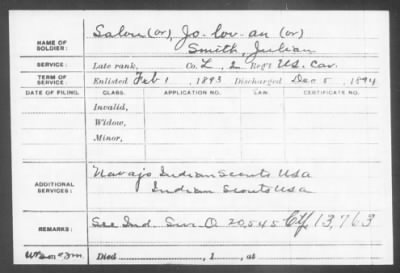 Salou (or), Jo-lov-an (or)
NAME OF SOLDIER: Smith, Julian
SERVICE: Late rank, Co. L, 2 Reg't U.S. Cav.
TERM OF SERVICE: Enlisted Feb 1, 1893 Discharged Dec 5, 1894
DATE OF FILING. CLASS. APPLICATION NO. LAW. CERTIFICATE NO.
Invalid,
Widow,
Minor,
Navajo Indian Scouts USA
ADDITIONAL SERVICES: Indian Scouts USA
REMARKS: See Ind. Sur. O 20,545 Ctf. 13,763
Died , 1 , at